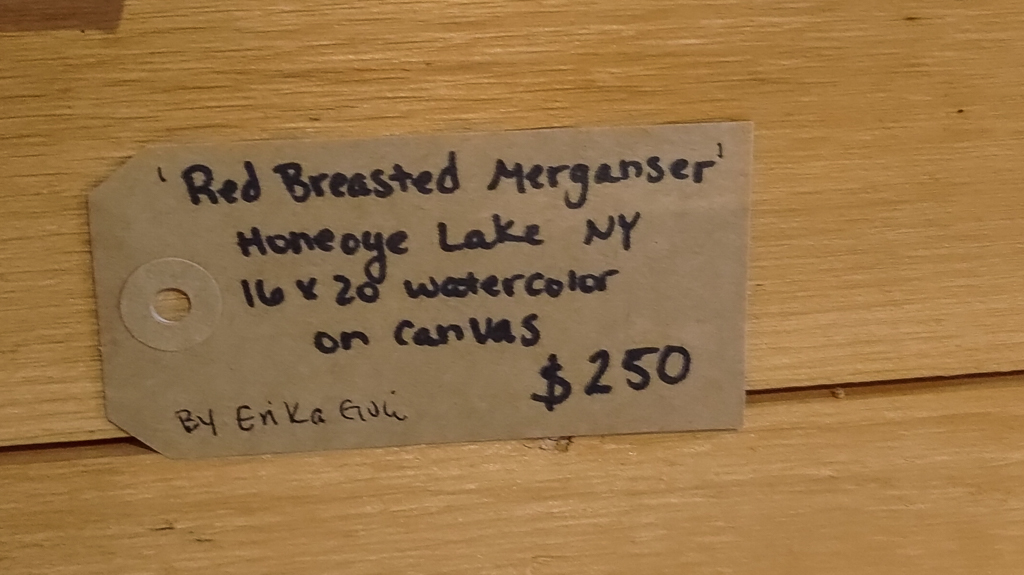 'Red Breasted Merganser'
Honeoye Lake NY
16 x 20 watercolor
on canvas
$250
By Erika